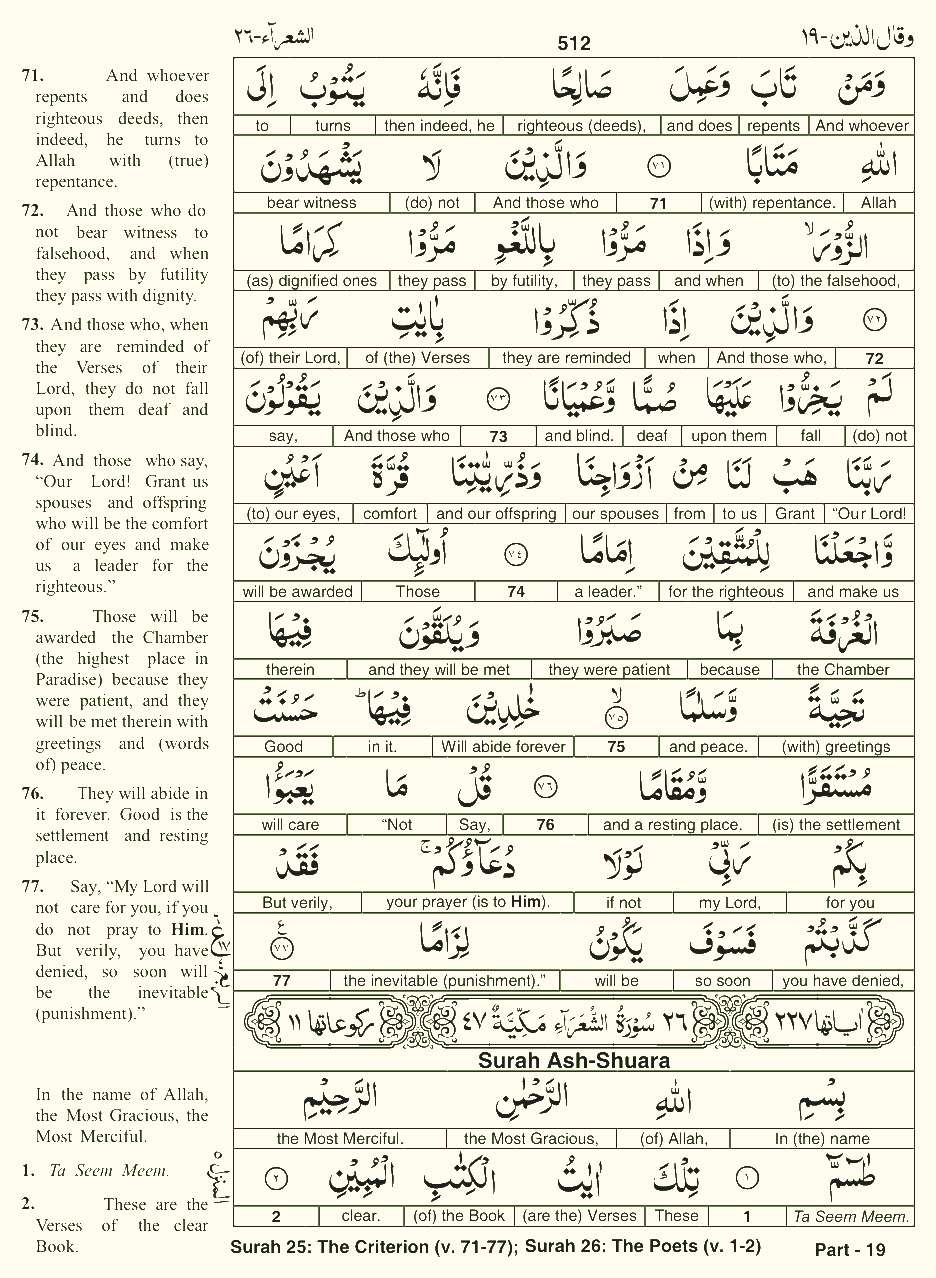 الشعرآء-٢٦
512
وقال الذين-١٩
71. And whoever
repents and does
righteous deeds, then
indeed, he turns to
Allah with (true)
repentance.
72. And those who do
not bear witness to
falsehood, and when
they pass by futility
they pass with dignity.
73. And those who, when
they are reminded of
the Verses of their
Lord, they do not fall
upon them deaf and
blind.
74. And those who say,
“Our Lord! Grant us
spouses and offspring
who will be the comfort
of our eyes and make
us a leader for the
righteous.”
75. Those will be
awarded the Chamber
(the highest place in
Paradise) because they
were patient, and they
will be met therein with
greetings and (words
of) peace.
76. They will abide in
it forever. Good is the
settlement and resting
place.
77. Say, “My Lord will
not care for you, if you
do not pray to Him.
But verily, you have
denied, so soon will
be the inevitable
(punishment).”
In the name of Allah,
the Most Gracious, the
Most Merciful.
1. Ta Seem Meem.
2. These are the
Verses of the clear
Book.
وَمَنْ تَابَ وَعَمِلَ صَالِحًا فَاِنَّهٗ يَتُوْبُ اِلَى
to turns then indeed, he righteous (deeds), and does repents And whoever
اللّٰهِ مَتَابًا ﴿٧١﴾ وَالَّذِيْنَ لَا يَشْهَدُوْنَ
bear witness (do) not And those who 71 (with) repentance. Allah
الزُّوْرَ ۙ وَاِذَا مَرُّوْا بِاللَّغْوِ مَرُّوْا كِرَامًا
(as) dignified ones they pass by futility, they pass and when (to) the falsehood,
﴿٧٢﴾ وَالَّذِيْنَ اِذَا ذُكِّرُوْا بِاٰيٰتِ رَبِّهِمْ
(of) their Lord, of (the) Verses they are reminded when And those who, 72
لَمْ يَخِرُّوْا عَلَيْهَا صُمًّا وَّعُمْيَانًا ﴿٧٣﴾ وَالَّذِيْنَ يَقُوْلُوْنَ
say, And those who 73 and blind. deaf upon them fall (do) not
رَبَّنَا هَبْ لَنَا مِنْ اَزْوَاجِنَا وَذُرِّيّٰتِنَا قُرَّةَ اَعْيُنٍ
(to) our eyes, comfort and our offspring our spouses from to us Grant “Our Lord!
وَّاجْعَلْنَا لِلْمُتَّقِيْنَ اِمَامًا ﴿٧٤﴾ اُولٰٓئِكَ يُجْزَوْنَ
will be awarded Those 74 a leader.” for the righteous and make us
الْغُرْفَةَ بِمَا صَبَرُوْا وَيُلَقَّوْنَ فِيْهَا
therein and they will be met they were patient because the Chamber
تَحِيَّةً وَّسَلٰمًا ۙ﴿٧٥﴾ خٰلِدِيْنَ فِيْهَا ؕ حَسُنَتْ
Good in it. Will abide forever 75 and peace. (with) greetings
مُسْتَقَرًّا وَّمُقَامًا ﴿٧٦﴾ قُلْ مَا يَعْبَؤُا
will care “Not Say, 76 and a resting place. (is) the settlement
بِكُمْ رَبِّيْ لَوْلَا دُعَآؤُكُمْ ۚ فَقَدْ
But verily, your prayer (is to Him). if not my Lord, for you
كَذَّبْتُمْ فَسَوْفَ يَكُوْنُ لِزَامًا ﴿٧٧﴾ ع
77 the inevitable (punishment).” will be so soon you have denied,
اٰياتها ٢٢٧ ٢٦ سُوْرَةُ الشُّعَرَآءِ مَكِّيَّةٌ ٤٧ ركوعاتها ١١
Surah Ash-Shuara
بِسْمِ اللّٰهِ الرَّحْمٰنِ الرَّحِيْمِ
the Most Merciful. the Most Gracious, (of) Allah, In (the) name
طٰسٓمّٓ ﴿١﴾ تِلْكَ اٰيٰتُ الْكِتٰبِ الْمُبِيْنِ ﴿٢﴾
2 clear. (of) the Book (are the) Verses These 1 Ta Seem Meem.
Surah 25: The Criterion (v. 71-77); Surah 26: The Poets (v. 1-2)
Part - 19